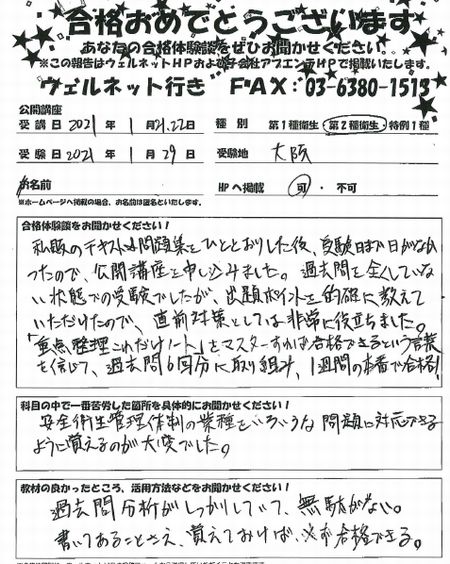 合格おめでとうございます
あなたの合格体験談をぜひお聞かせください。
※この報告はウェルネットHPおよび子会社アプエンテHPで掲載いたします。
ウェルネット行き FAX:03-6380-1513
公開講座
受講日 2021年 1月21.22日 種別 第1種衛生 第2種衛生 特例1種
受験日 2021年 1月29日 受験地 大阪
お名前 HPへ掲載 可・不可
※ホームページへ掲載の場合、お名前は匿名といたします。
合格体験談をお聞かせください!
私販のテキストと問題集をひととおりした後、受験日まで日がなか
ったので、公開講座を申し込みました。過去問を全くしていな
い状態での受験でしたが、出題ポイントを的確に教えて
いただけたので、直前対策としては非常に役立ちました。
「重点整理これだけノート」をマスターすれば合格できるという言葉
を信じて、過去問6回分に取り組み、1週間の本番で合格!
科目の中で一番苦労した箇所を具体的にお聞かせください!
安全衛生管理体制の業種をいろいろな問題に対応できる
ように覚えるのが大変でした。
教材の良かったところ、活用方法などをお聞かせください!
過去問分析がしっかりしていて、無駄がない。
書いてあることさえ、覚えておけば、必ず合格できる。